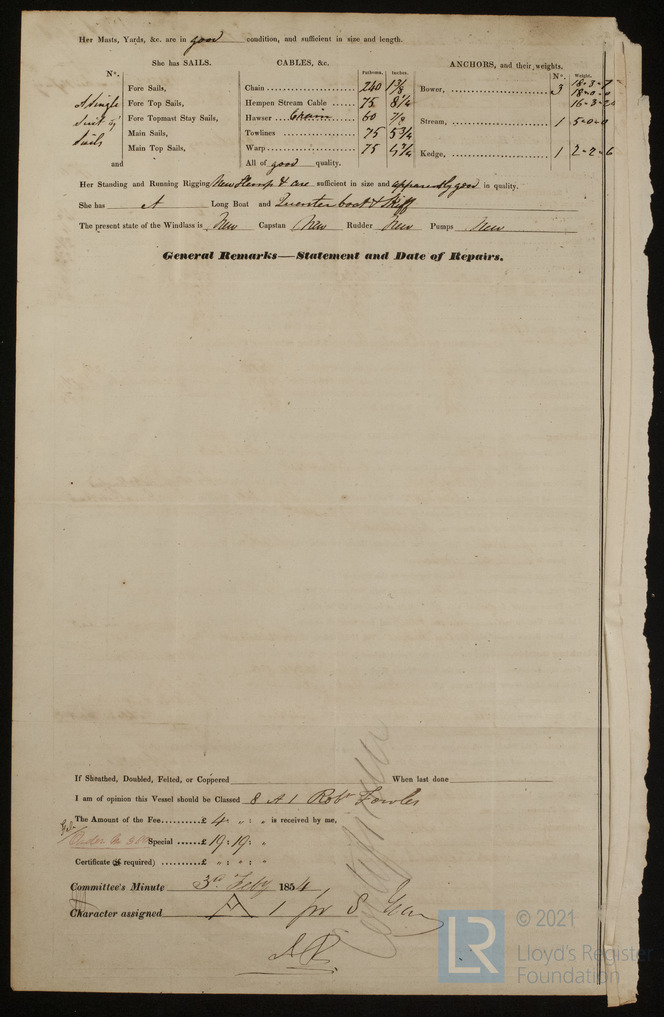 Her Masts, Yards, &c. are in good condition, and sufficient in size and length.
She has SAILS.
CABLES, &c.
ANCHORS, and their weights.
N°.
Fathoms. Inches.
N°. Weight.
A single
Suit of
Sails
and
Fore Sails,
Fore Top Sails,
Fore Topmast Stay Sails,
Main Sails,
Main Top Sails,
Chain 240 1 3/8
Hempen Stream Cable 75 8 1/4
Hawser Chain 60 7/8
Towlines 75 5 3/4
Warp 75
All of good quality.
Bower, 3 18-3-7
18-0-0
16-3-2
Stream, 1 5-0-0
Kedge, 1 2-2-6
Her Standing and Running Rigging New Hemp & are sufficient in size and apparently good in quality.
She has A Long Boat and Quarter boat & Skiff
The present state of the Windlass is New Capstan New Rudder New Pumps New
General Remarks—Statement and Date of Repairs.
If Sheathed, Doubled, Felted, or Coppered When last done
I am of opinion this Vessel should be Classed 8 A 1 Robt Fowles
The Amount of the Fee £ 4 " : " is received by me,
Special £ 19 : 19 : "
Certificate (if required) £ " : " : "
Committee's Minute 3d Feby 1854
Character assigned A 1 for 8 Years
© 2021
LR
Lloyd's Register
Foundation